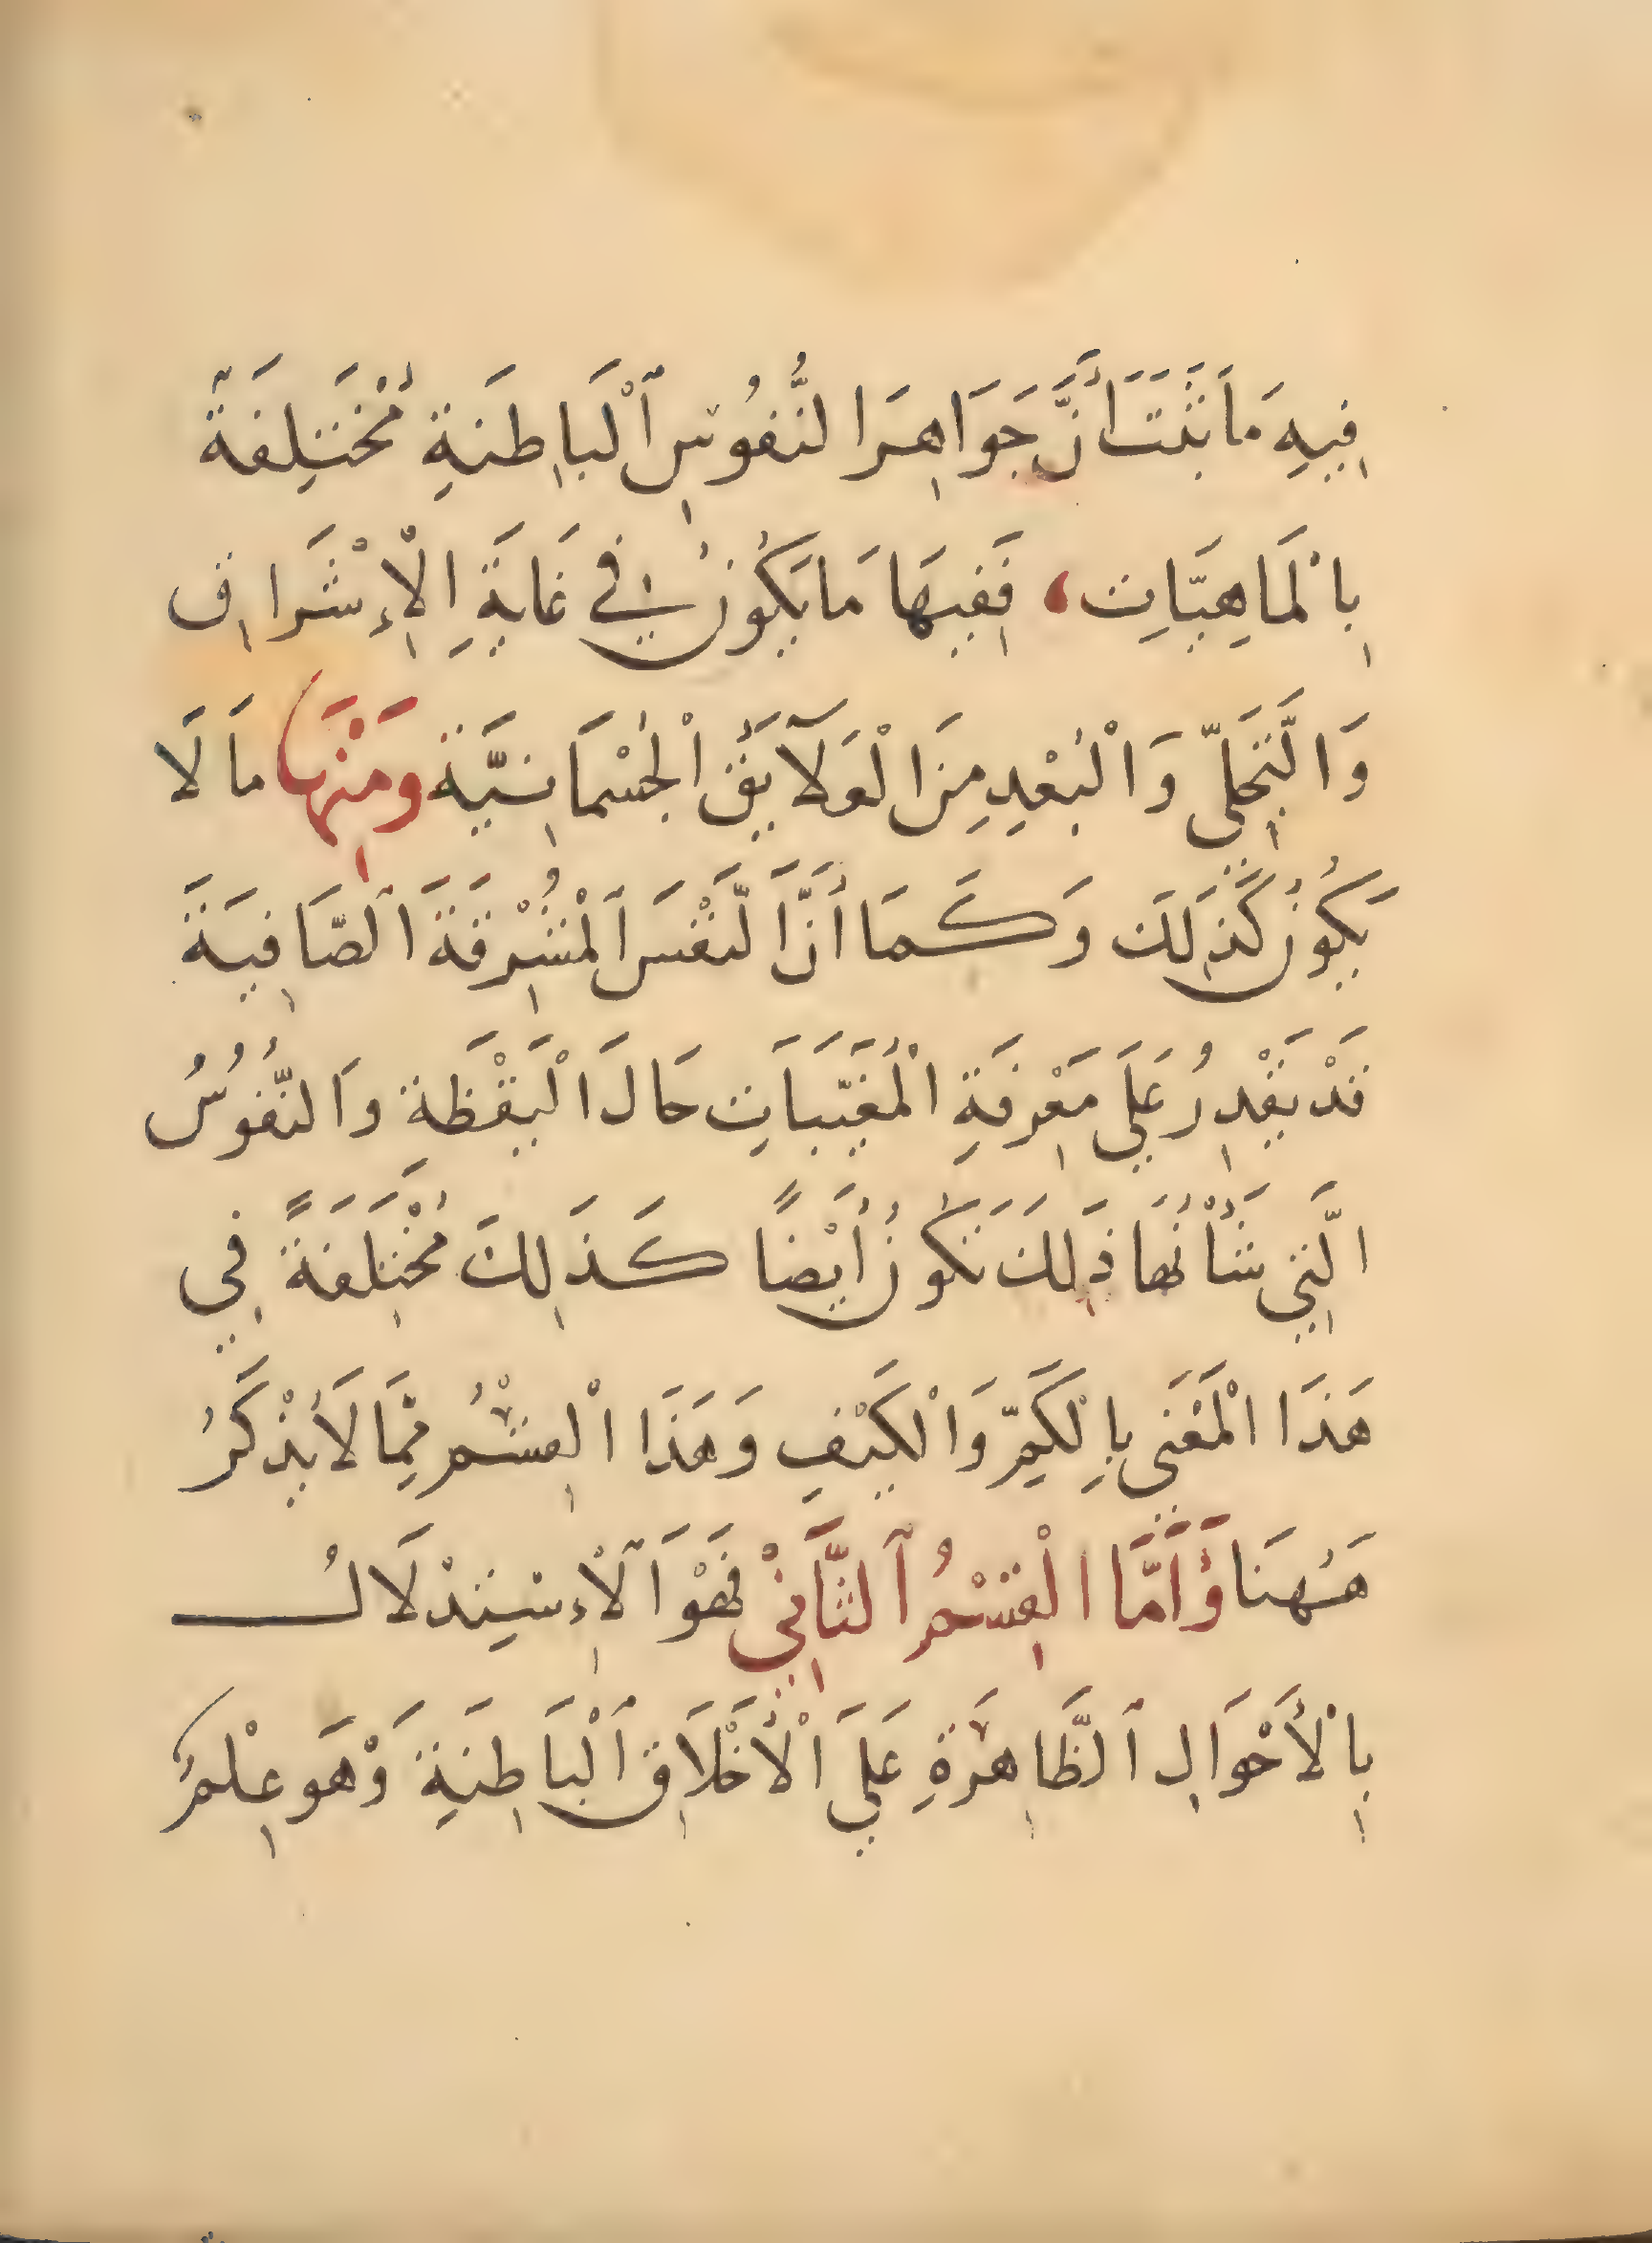 فِيهِ مَا ثَبَتَ أَنَّ جَوَاهِرَ النُّفُوسِ ٱلْبَاطِنَةِ مُخْتَلِفَةٌ
بِالْمَاهِيَّاتِ، فَفِيهَا مَا يَكُونُ فِي غَايَةِ الْإِشْرَاقِ
وَالتَّجَلِّي وَالْبُعْدِ مِنَ الْعَلَآيِقِ الْجُسْمَانِيَّةِ وَمِنْهَا مَا لَا
يَكُونُ كَذَلِكَ وَكَمَا أَنَّ النَّفْسَ الْمُشْرِقَةَ الصَّافِيَةَ
قَدْ يَقْدِرُ عَلَي مَعْرِفَةِ الْمُغَيَّبَاتِ حَالَ الْيَقْظَةِ وَالنُّفُوسُ
الَّتِي شَأْنُهَا ذَلِكَ تَكُونُ أَيْضًا كَذَلِكَ مُخْتَلِفَةً فِي
هَذَا الْمَعْنَى بِالْكَمِّ وَالْكَيْفِ وَهَذَا الْقِسْمُ مِمَّا لَا يُذْكَرُ
هَهُنَا وَأَمَّا الْقِسْمُ ٱلثَّانِي فَهْوَ ٱلْإِسْتِدْلَالُ
بِالْأَحْوَالِ ٱلظَّاهِرَةِ عَلَي الْأَخْلَاقِ ٱلْبَاطِنَةِ وَهْوَ عِلْمٌ